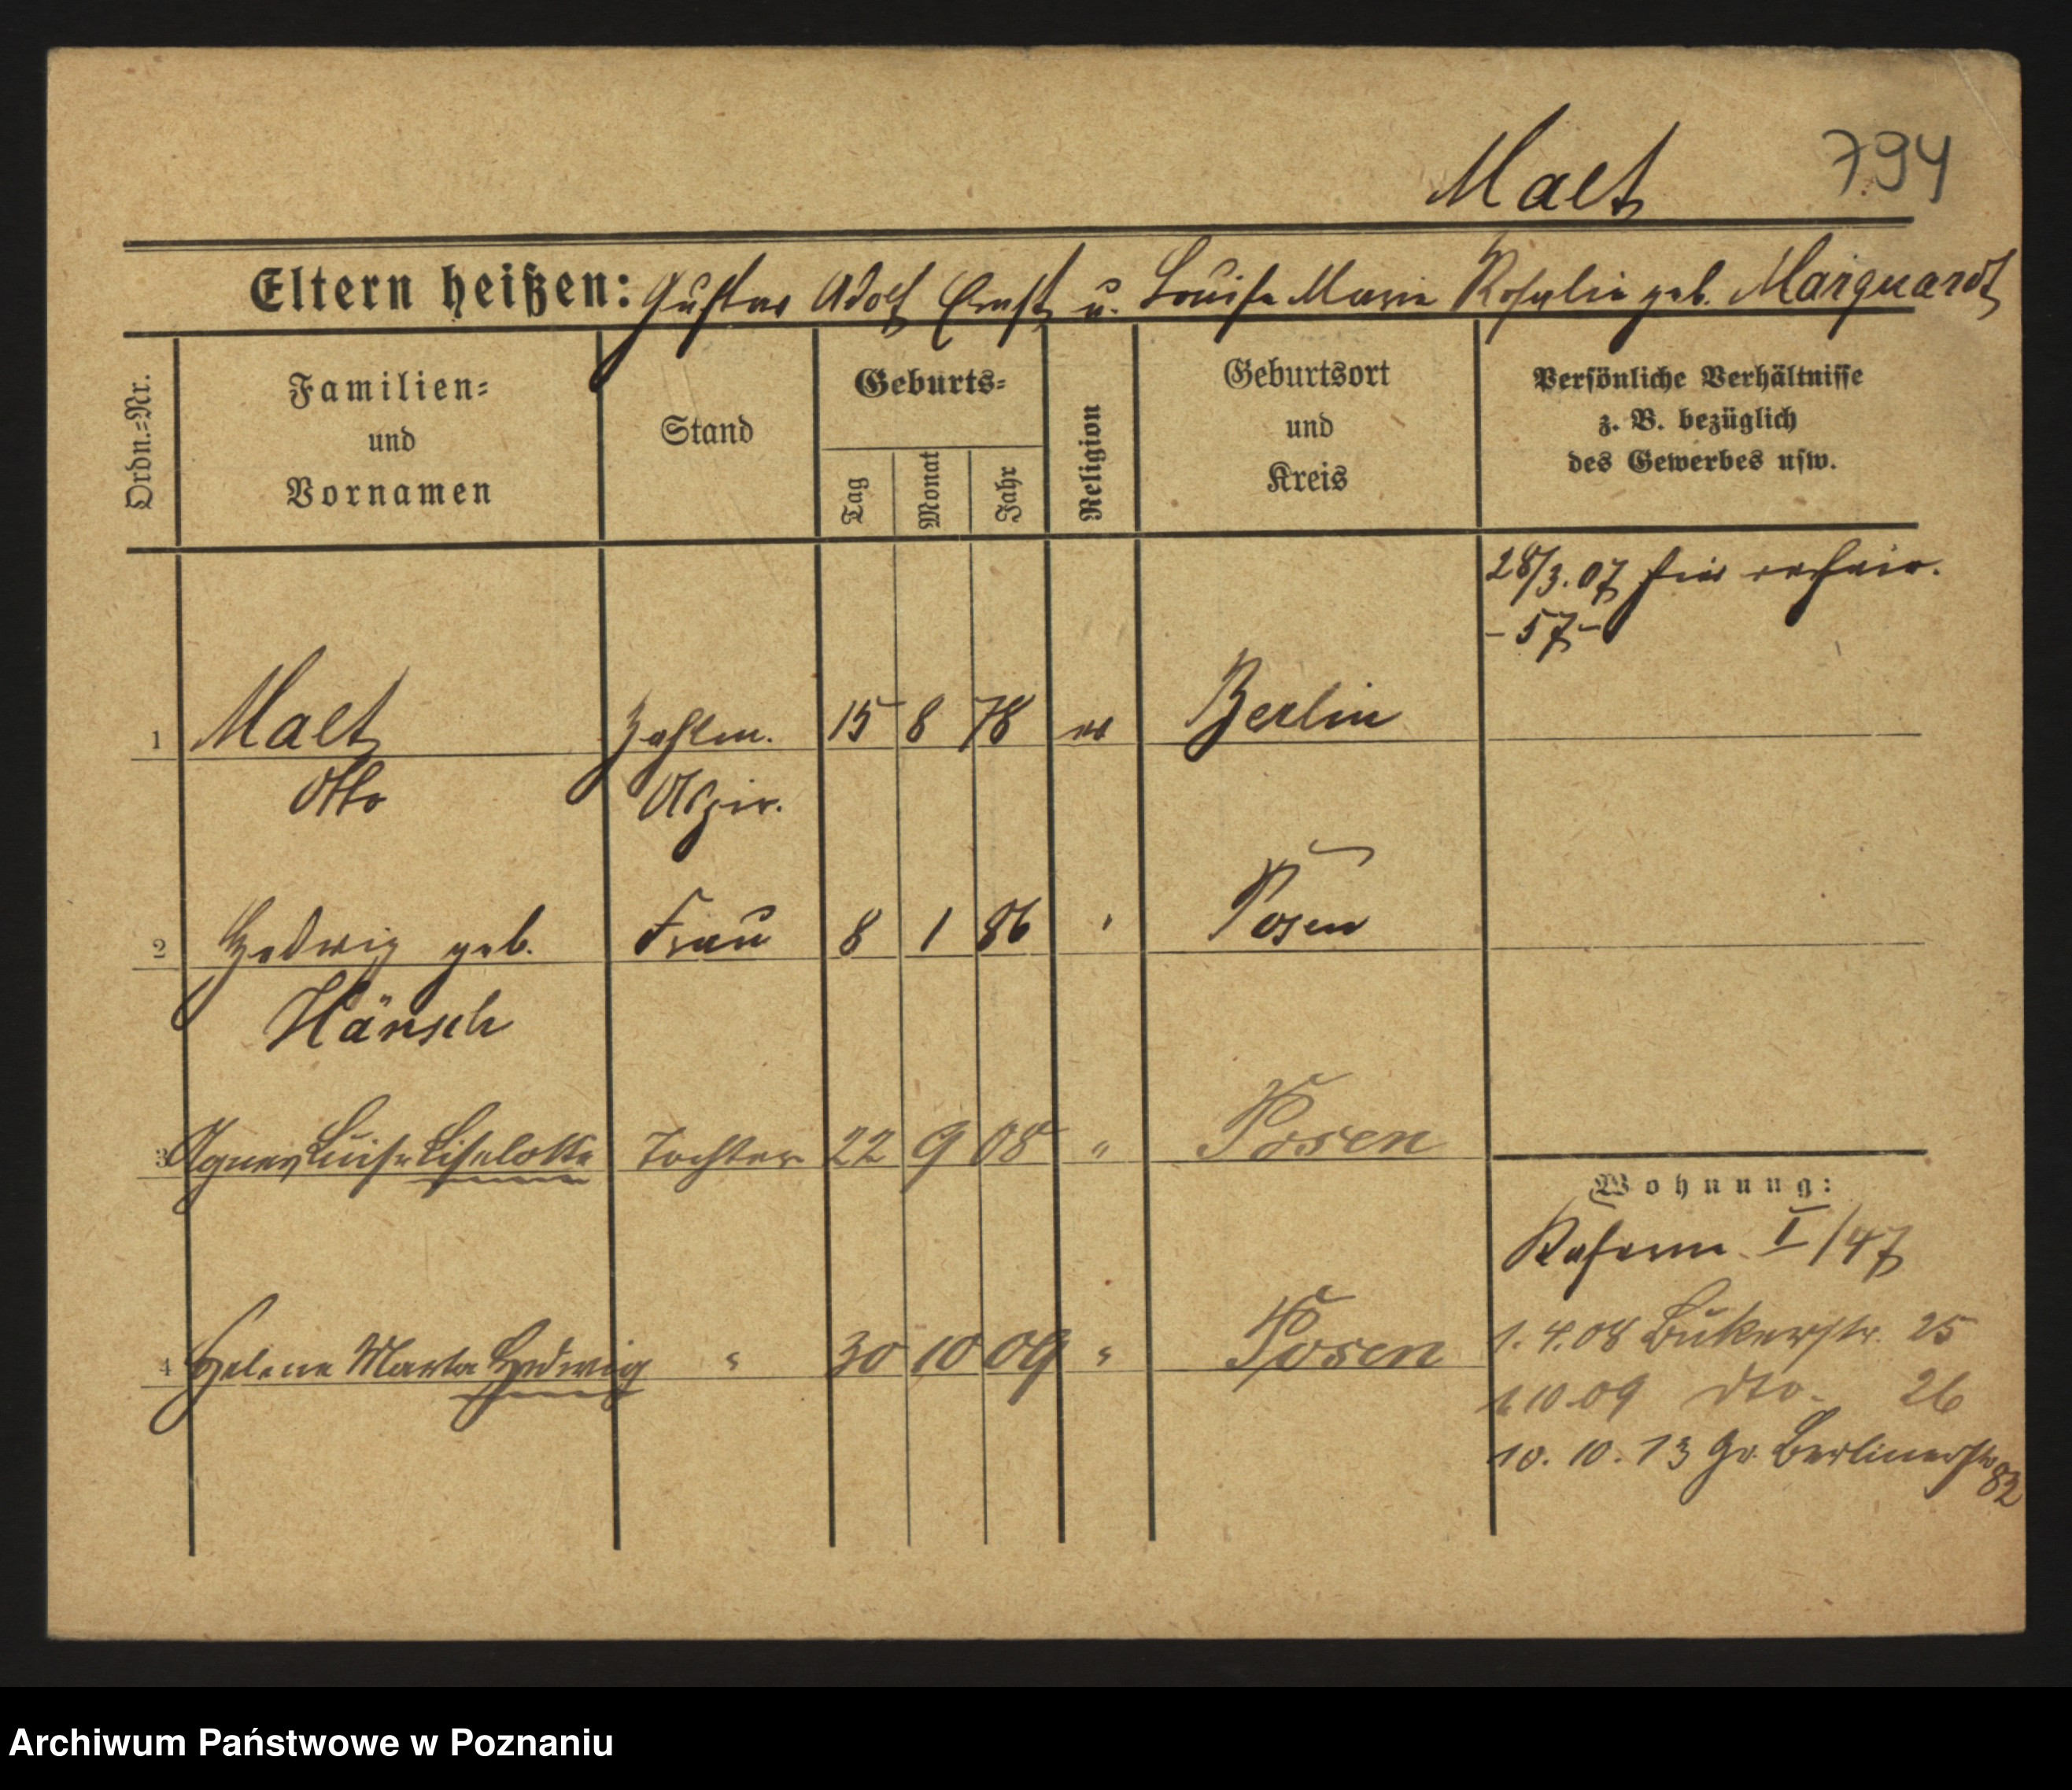 Malt 794
Eltern heißen: Gustav Adolf Ernst u. Louise Marie Rosalie geb. Marquardt
Ordn.=Nr.
Familien=
und
Vornamen
Stand
Geburts=
Tag
Monat
Jahr
Religion
Geburtsort
und
Kreis
Persönliche Verhältnisse
z. B. bezüglich
des Gewerbes usw.
28/3.07 hier
- 57 -
1 Malt Zahlm. 15 8 78 ev Berlin
Otto Aspir.
2 Hedwig geb. Frau 8 1 86 " Posen
Hänsch
3 Agnes Luise Liselotte Tochter 22 9 08 " Posen
4 Helene Marta Hedwig " 30 10 09 " Posen
Wohnung:
Kaserne I/47
1.4.08 Bukerstr. 25
1.10.09 dto. 26
10.10.13 Gr. Berlinerstr 82
Archiwum Państwowe w Poznaniu